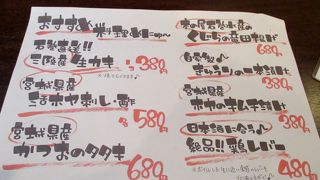 おすすめ料理めにゅ〜
石巻直送!!
三陸産 生カキ 380円
宮城県産
ホヤ刺し・酢 580円
宮城県産
かつおのタタキ 680円
くじらの竜田揚げ
680円
自家製♪
きゅうりの一本漬け
380円
宮城県産
ホヤのキムチ漬け
380円
日本酒に合う♪
絶品!!鶏レバー
480円